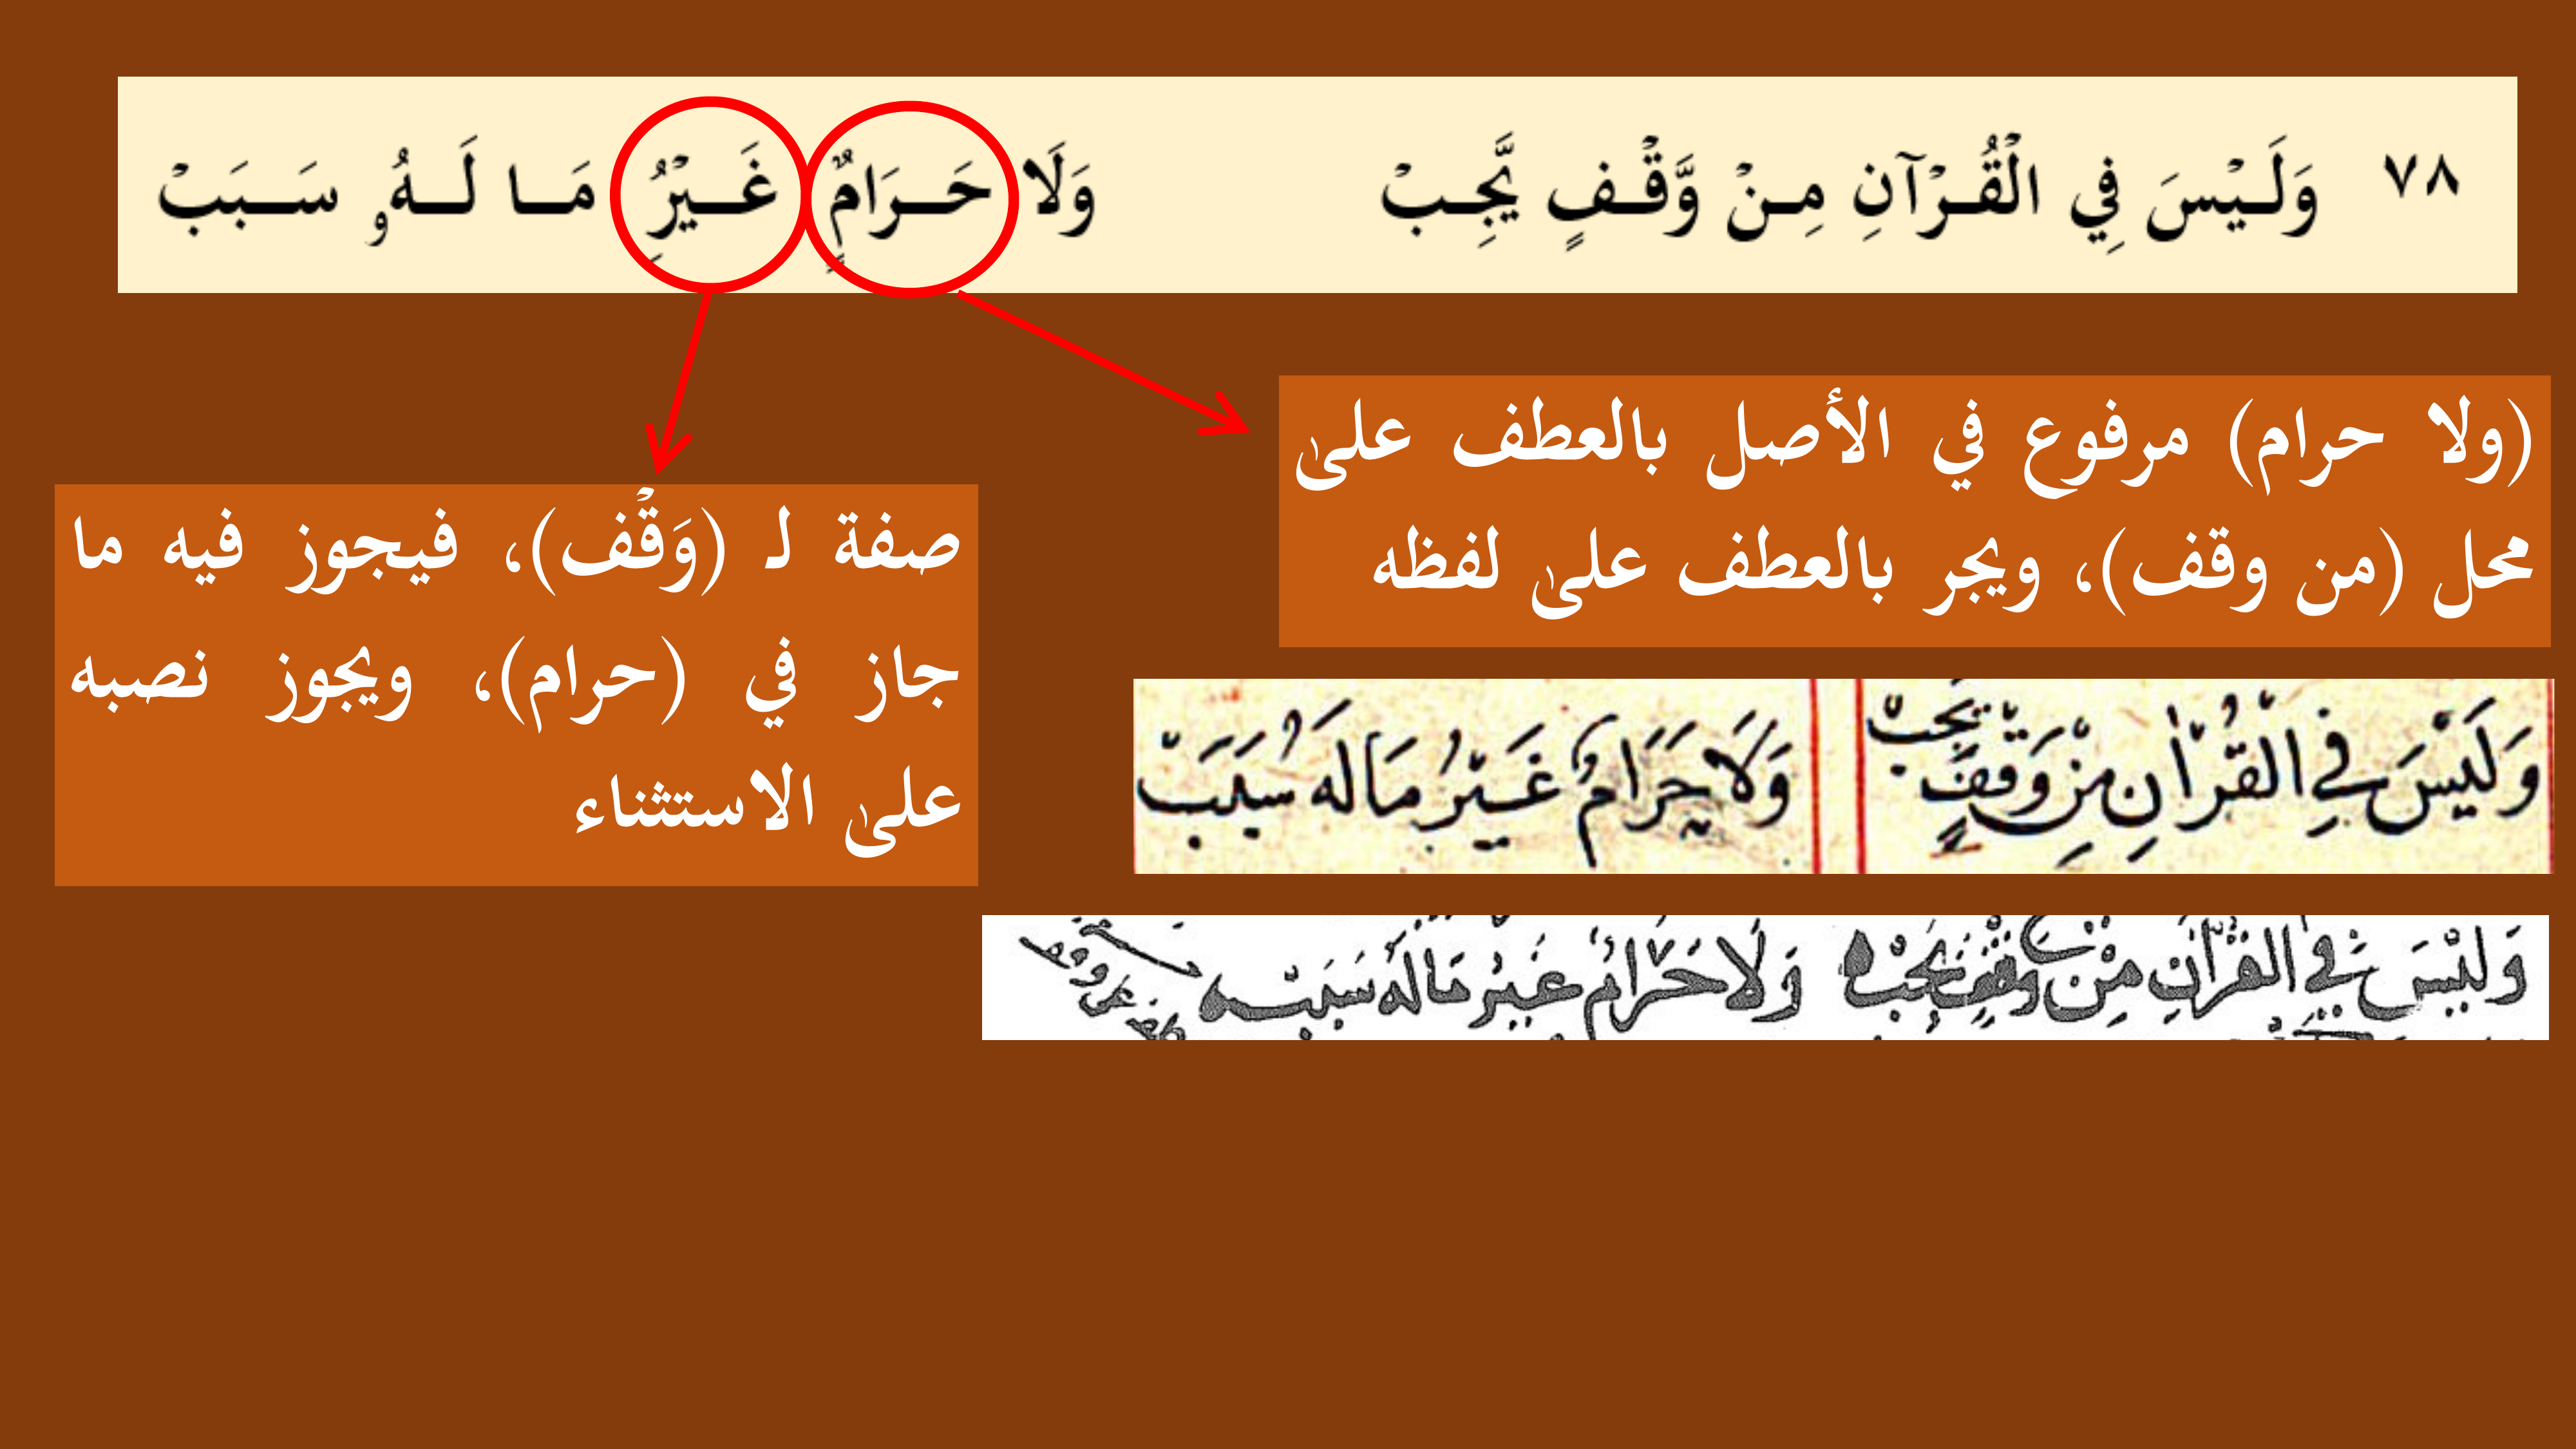 ٧٨ وَلَـيْسَ فِي الْقُـرْآنِ مِـنْ وَّقْـفٍ يَّجِـبْ وَلَا حَـرَامٌٍ غَـيْرُِ مَـا لَـهُۥ سَـبَبْ
(ولا حرام) مرفوع في الأصل بالعطف علىٰ
محل (من وقف)، ويجر بالعطف علىٰ لفظه
صفة لـ (وَقْف)، فيجوز فيه ما
جاز في (حرام)، ويجوز نصبه
علىٰ الاستثناء
وَلَيْسَ فِي الْقُرْاٰنِ مِنْ وَقْفٍ يَجِبْ وَلَا حَرَامٌ غَيْرُ مَا لَهُ سَبَبْ
وَلَيْسَ فِي الْقُرْاٰنِ مِنْ وَقْفٍ يَجِبْ وَلَا حَرَامٌ غَيْرُ مَا لَهُ سَبَبْ